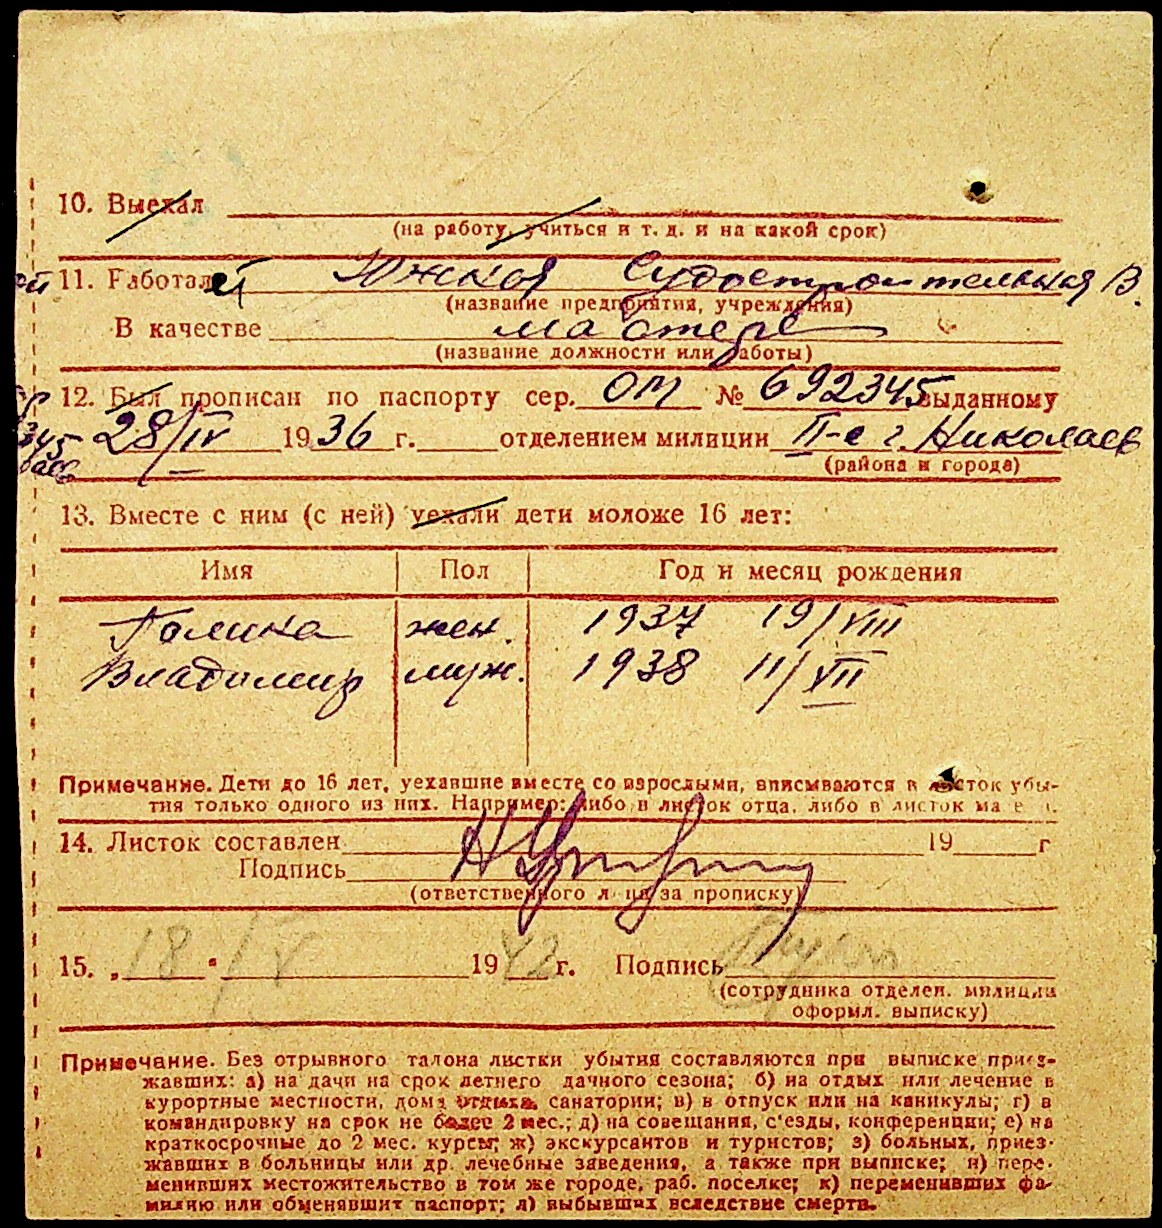 10. Выехал
(на работу, учиться и т. д. и на какой срок)
11. Работал Южная Судостроительная В.
(название предприятия, учреждения)
В качестве мастера
(название должности или работы)
12. Был прописан по паспорту сер. ОМ № 692345 выданному
28/IV 1936 г. отделением милиции II-е г. Николаев
(района и города)
13. Вместе с ним (с ней) уехали дети моложе 16 лет:
Имя Пол Год и месяц рождения
Галина жен. 1937 19/VIII
Владимир муж. 1938 11/VII
Примечание. Дети до 16 лет, уехавшие вместе со взрослыми, вписываются в листок убы-
тия только одного из них. Например: либо в листок отца, либо в листок
14. Листок составлен 19 г
Подпись
(ответственного лица за прописку)
15. „18" IV 1942 г. Подпись
(сотрудника отделен. милиции
оформл. выписку)
Примечание. Без отрывного талона листки убытия составляются при выписке приез-
жавших: а) на дачи на срок летнего дачного сезона; б) на отдых или лечение в
курортные местности, дома отдыха, санатории; в) в отпуск или на каникулы; г) в
командировку на срок не более 2 мес.; д) на совещания, с'езды, конференции; е) на
краткосрочные до 2 мес. курсы; ж) экскурсантов и туристов; з) больных, приез-
жавших в больницы или др. лечебные заведения, а также при выписке; и) пере-
менивших местожительство в том же городе, раб. поселке; к) переменивших фа-
милию или обменявшит паспорт; л) выбывших вследствие смерти.